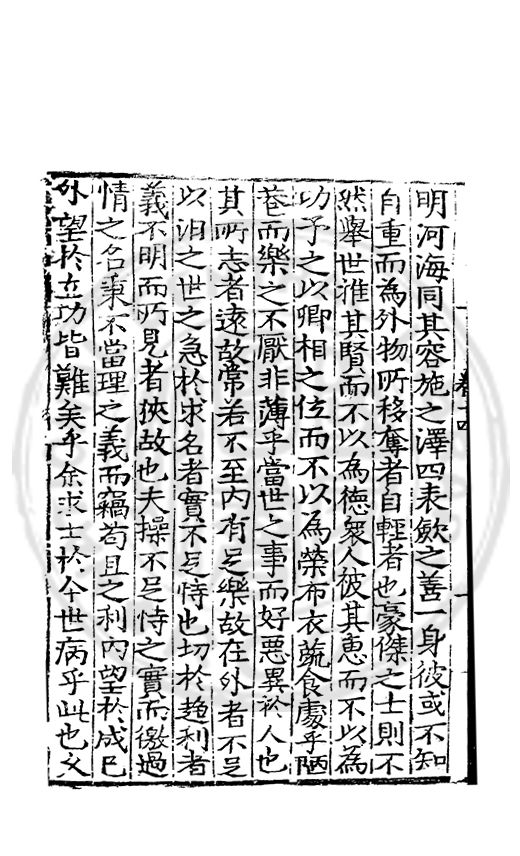 明河海同其容施之澤四表歛之善一身彼或不知
自重而為外物所移奪者自輕者也豪傑之士則不
然舉世推其賢而不以為德衆人被其惠而不以為
功予之以卿相之位而不以為榮布衣蔬食處乎陋
巷而樂之不厭非薄乎當世之事而好惡異於人也
其所志者遠故常若不至內有足樂故在外者不足
以汨之世之急於求名者實不足恃也切於趍利者
義不明而所見者狹故也夫操不足恃之實而徼過
情之名棄不當理之義而竊苟且之利內望於成已
外望於立功皆難矣乎余求士於今世病乎此也久
卷十四